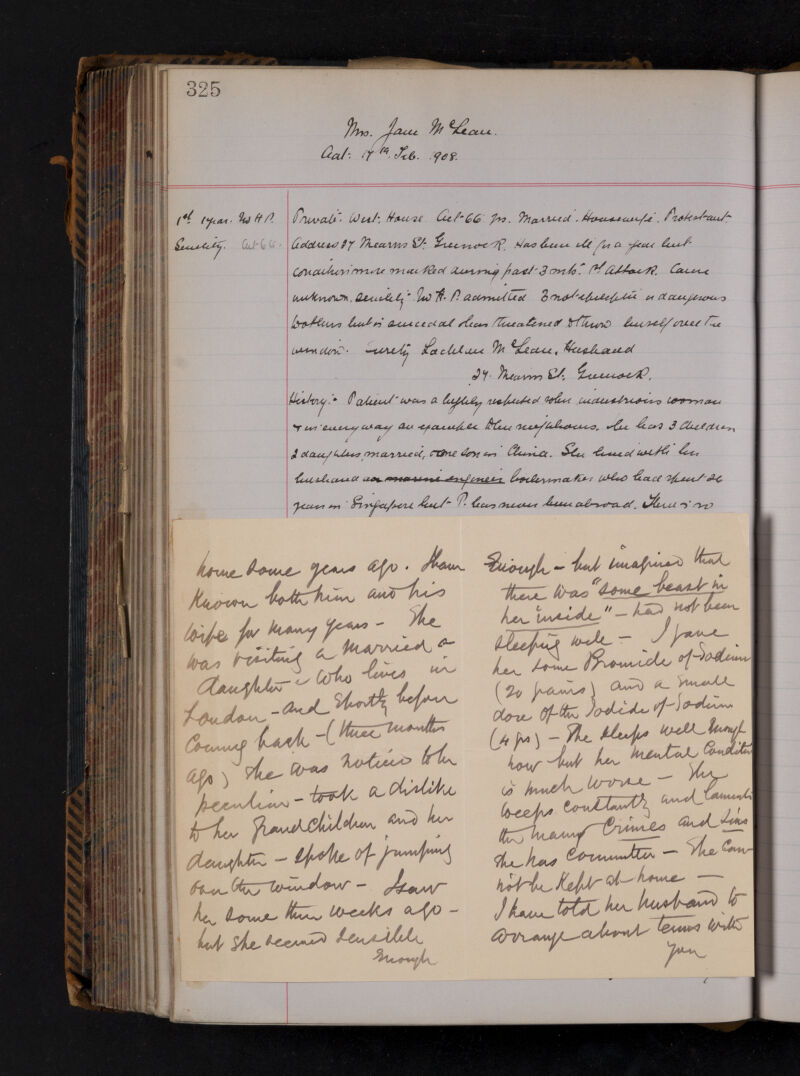 325
Mrs. Jane McLean.
Adt: 17th Feb. 1908.
1st year. No H.P.
Senility. Aet 66.
Private. West House Aet 66 yrs. Married. Housewife. Protestant
Address 27 Mearns St. Greenock. Has been ill for a year but
condition more marked during past 3 mths. 1st Attack. Cause
unknown, senility. No H.P. admitted. Is not epileptic or dangerous
to others but is suicidal & has threatened to throw herself over the
window. Surety Lachlan McLean, Husband
27 Mearns St. Greenock.
History:- Patient was a highly respected sober industrious woman
& in every way an example to her neighbours. She has 3 children
2 daughters, married, & one son in China. She lived with her
husband an marine engineer boilermaker who had spent 20
years in Singapore but P. has never been abroad. There is no
home some years ago. I have
known both him and his
wife for many years - She
was visiting a married
daughter who lives in
London - and shortly before
coming back - (three months
ago) she was noticed to be
peculiar - took a dislike
to her grandchildren and her
daughter - spoke of jumping
over the window - I saw
her some three weeks ago -
but she seemed sensible
Enough
Enough - but imagined that
there was "some beast in
her inside" - had not been
sleeping well - I gave
her some Bromide of Sodium
(20 grains) and a small
dose of the Iodide of Sodium
(4 grs) - She sleeps well enough
now but her mental condition
is much worse - She
weeps constantly and laments
the many crimes and sins
she has committed - She can
not be kept at home -
I have told her husband to
arrange about terms with
you